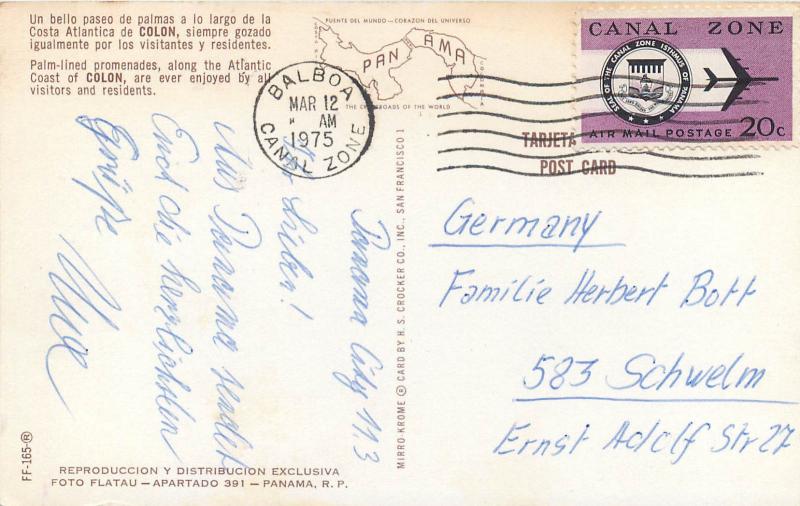 Un bello paseo de palmas a lo largo de la
Costa Atlantica de COLON, siempre gozado
igualmente por los visitantes y residentes.
Palm-lined promenades, along the Atlantic
Coast of COLON, are ever enjoyed by all
visitors and residents.
PUENTE DEL MUNDO — CORAZON DEL UNIVERSO
PANAMA
THE CROSSROADS OF THE WORLD
BALBOA
MAR 12
AM
1975
CANAL ZONE
CANAL ZONE
SEAL OF THE CANAL ZONE ISTHMUS OF PANAMA
AIR MAIL POSTAGE 20c
TARJETA
POST CARD
Panama City 11.3
Ihr Lieben!
Aus Panama sendet
Euch die herzlichsten
Grüße
Germany
Familie Herbert Bott
583 Schwelm
Ernst Adolf Str 27
MIRRO-KROME ® CARD BY H. S. CROCKER CO., INC., SAN FRANCISCO 1
FF-165-®
REPRODUCCION Y DISTRIBUCION EXCLUSIVA
FOTO FLATAU — APARTADO 391 — PANAMA, R. P.